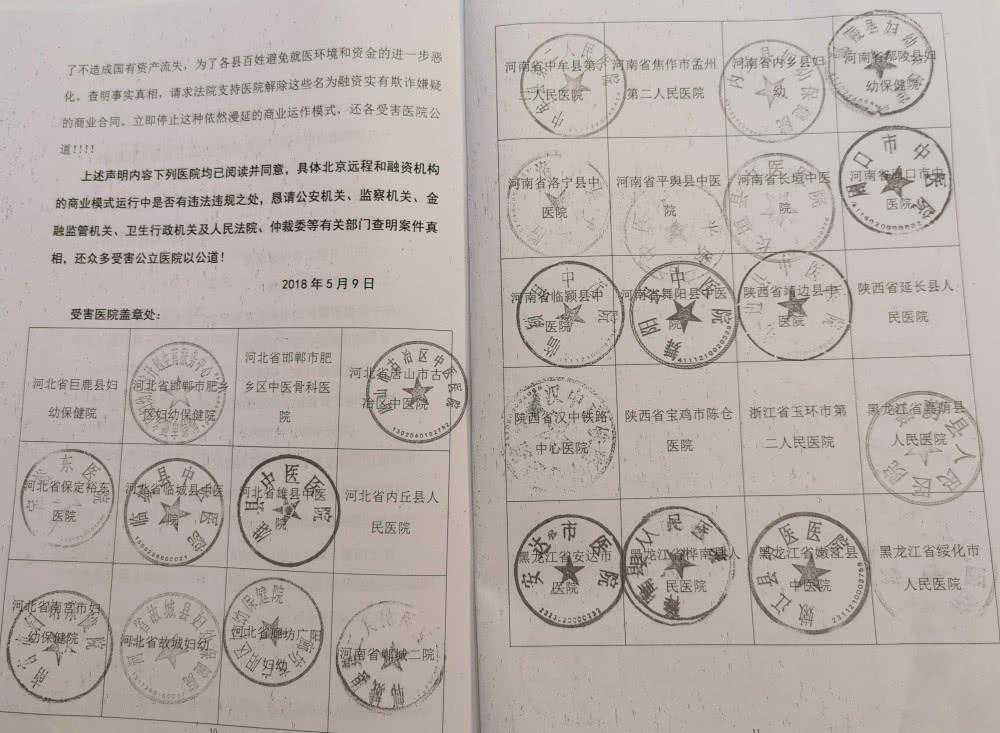 了不造成国有资产流失，为了各县百姓避免就医环境和资金的进一步恶
化。查明事实真相，请求法院支持医院解除这些名为融资实有欺诈嫌疑
的商业合同。立即停止这种依然漫延的商业运作模式，还各受害医院公
道！！！！
上述声明内容下列医院均已阅读并同意，具体北京远程和融资机构
的商业模式运行中是否有违法违规之处，恳请公安机关、监察机关、金
融监管机关、卫生行政机关及人民法院、仲裁委等有关部门查明案件真
相，还众多受害公立医院以公道！
2018年5月9日
受害医院盖章处：
河北省巨鹿县妇
幼保健院
河北省邯郸市肥乡
区妇幼保健院
河北省邯郸市肥
乡区中医骨科医
院
河北省唐山市古
冶区中医院
河北省保定裕东
医院
河北省临城县中医
院
河北省雄县中医
院
河北省内丘县人
民医院
河北省南宫市妇
幼保健院
河北省故城妇幼
河北省廊坊广阳
妇幼
河南省郸城二院
10
河南省中牟县第
二人民医院
河南省焦作市孟州
第二人民医院
河南省内乡县妇
幼
河南省鄢陵县妇
幼保健院
河南省洛宁县中
医院
河南省平舆县中医
院
河南省长垣中医
院
河南省周口市中
医院
河南省临颍县中
医院
河南省舞阳县中医
院
陕西省靖边中
医院
陕西省延长县人
民医院
陕西省汉中铁路
中心医院
陕西省宝鸡市陈仓
医院
浙江省玉环市第
二人民医院
黑龙江省嘉荫县
人民医院
黑龙江省安达市
医院
黑龙江省桦南县人
民医院
黑龙江省嫩江县
中医院
黑龙江省绥化市
人民医院
11